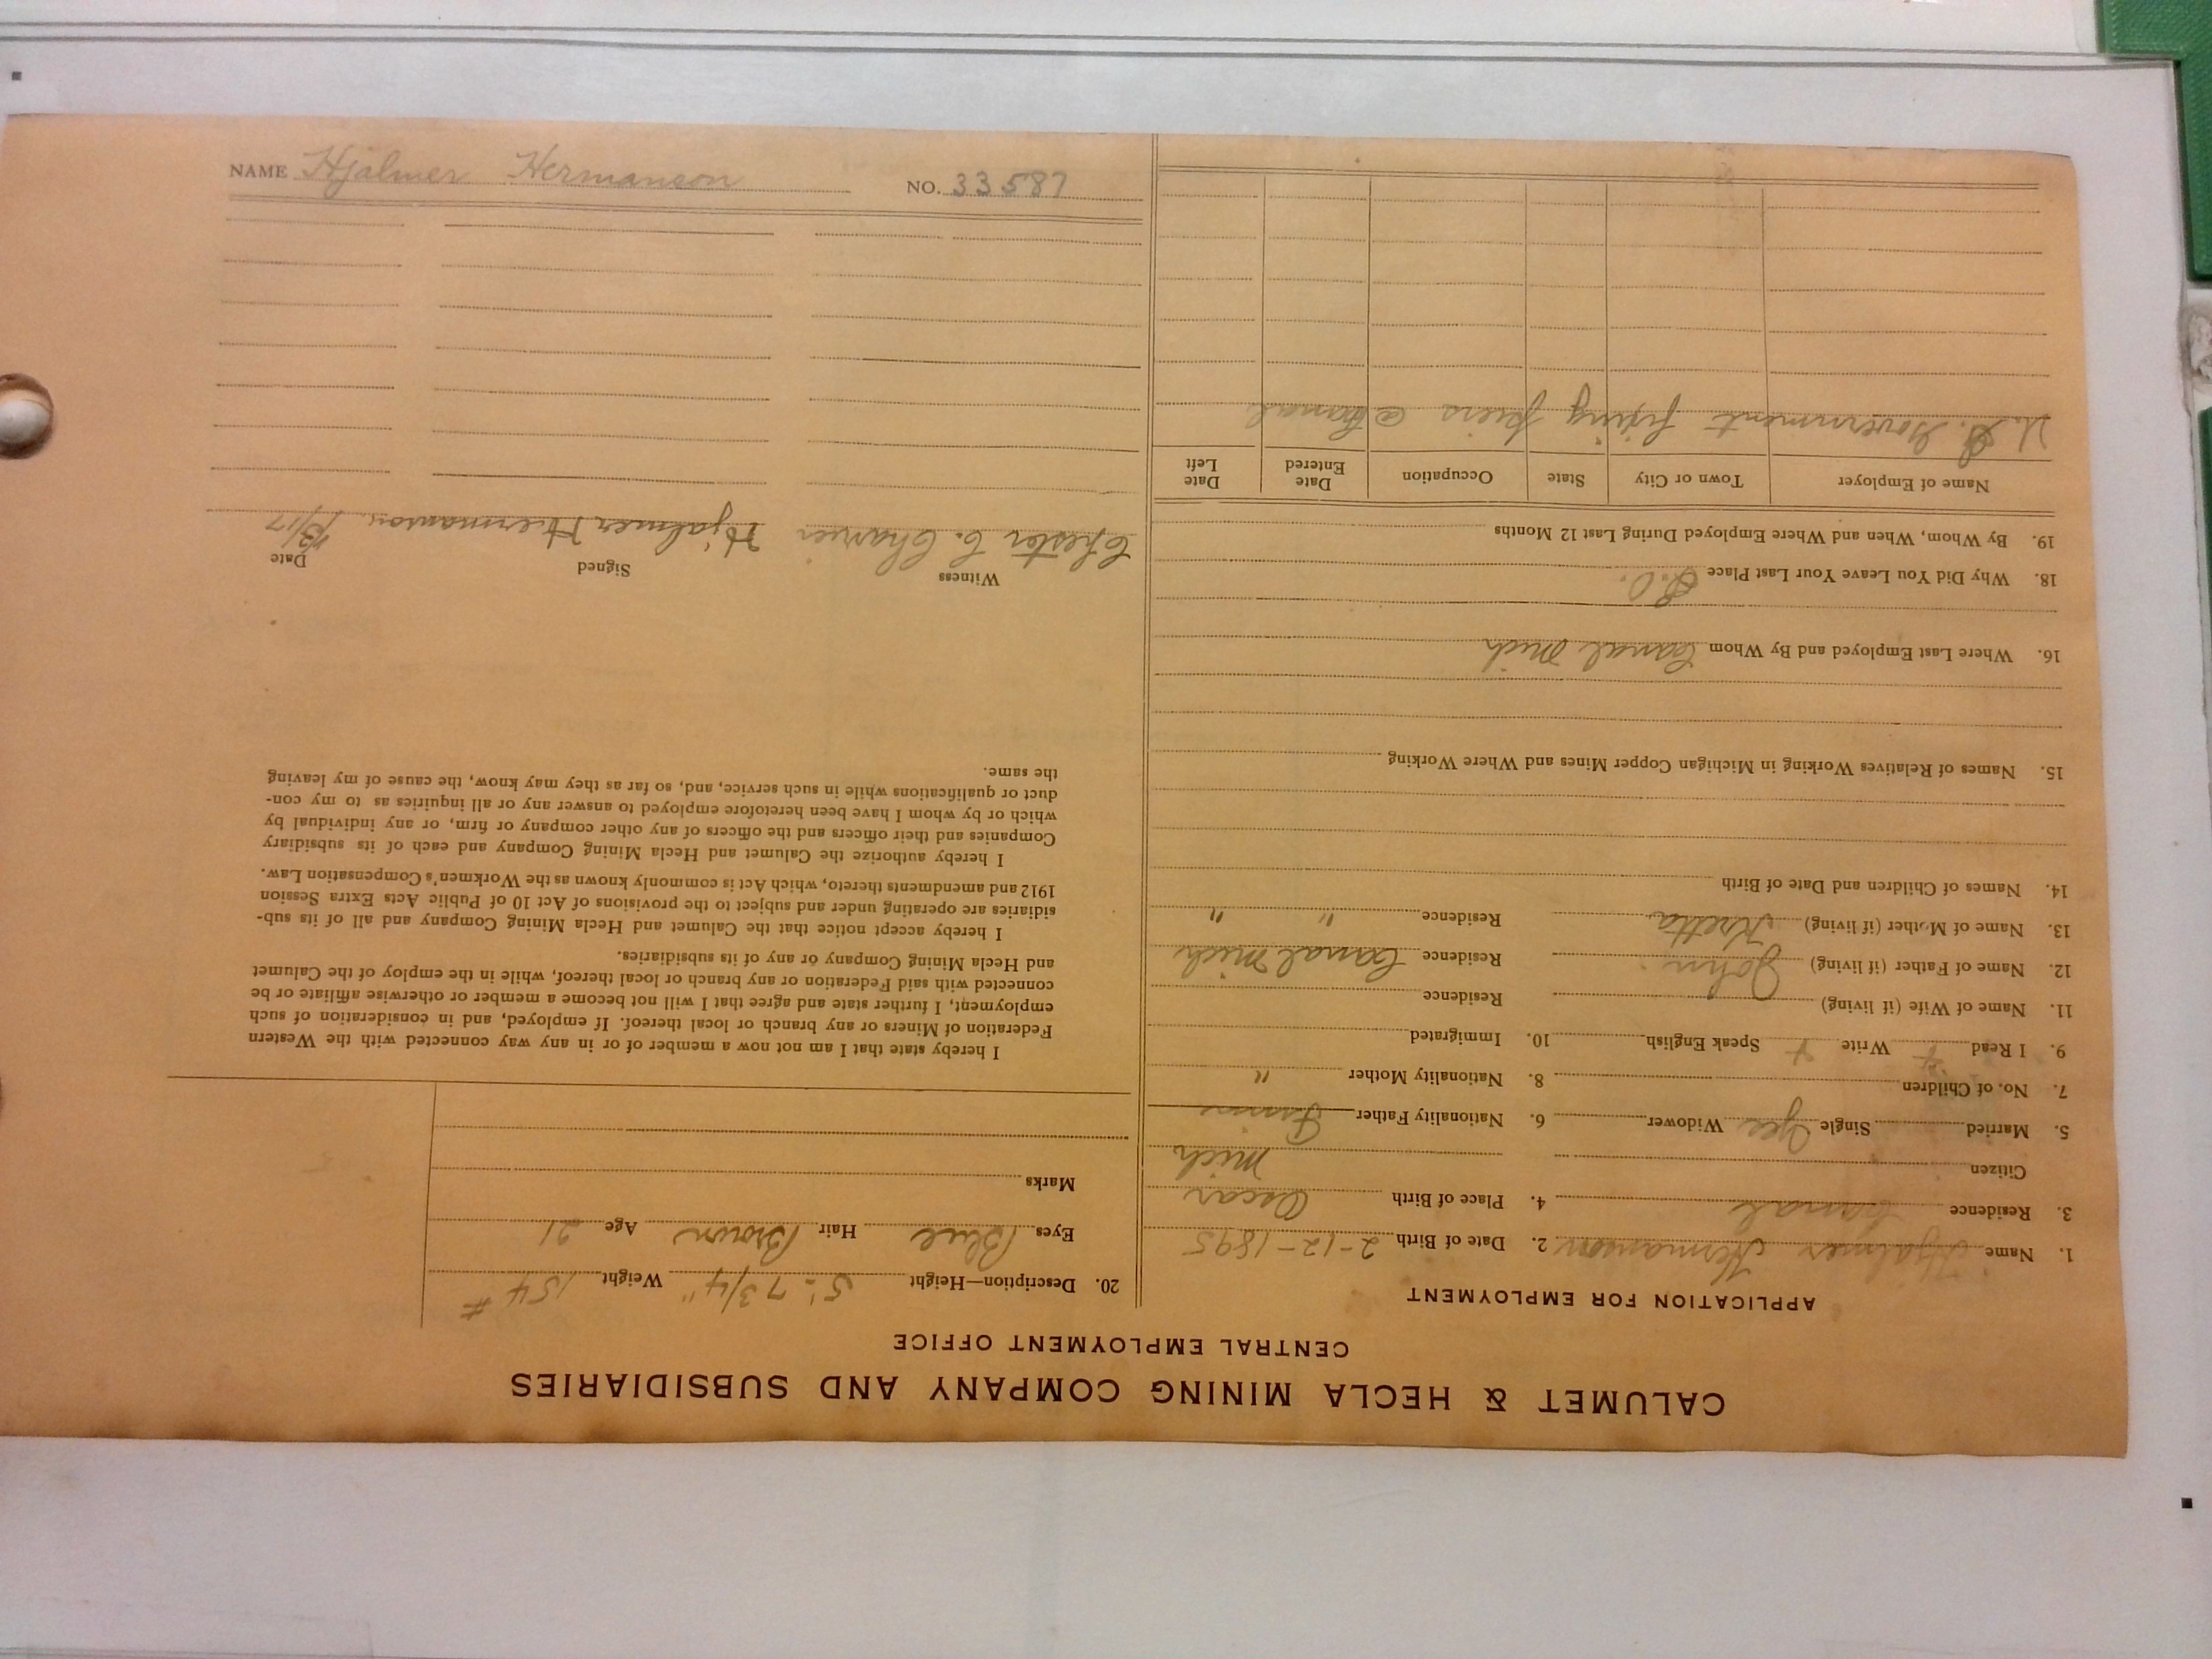 CALUMET & HECLA MINING COMPANY AND SUBSIDIARIES
CENTRAL EMPLOYMENT OFFICE
APPLICATION FOR EMPLOYMENT
1. Name Hjalmer Hermanson 2. Date of Birth 2-12-1895
3. Residence Canal 4. Place of Birth Oscar
Citizen Mich
5. Married Single Yes Widower 6. Nationality Father Finn
7. No. of Children 8. Nationality Mother "
9. I Read + Write + Speak English 10. Immigrated
11. Name of Wife (if living) Residence
12. Name of Father (if living) John Residence Canal Mich
13. Name of Mother (if living) Kretta Residence " "
14. Names of Children and Date of Birth
15. Names of Relatives Working in Michigan Copper Mines and Where Working
16. Where Last Employed and By Whom Canal Mich
18. Why Did You Leave Your Last Place
19. By Whom, When and Where Employed During Last 12 Months
Name of Employer Town or City State Occupation Date Entered Date Left
U.S. Government fixing piers @ Canal
20. Description—Height 5'-7 3/4" Weight 154 #
Eyes Blue Hair Brown Age 21
Marks
I hereby state that I am not now a member of or in any way connected with the Western
Federation of Miners or any branch or local thereof. If employed, and in consideration of such
employment, I further state and agree that I will not become a member or otherwise affiliate or be
connected with said Federation or any branch or local thereof, while in the employ of the Calumet
and Hecla Mining Company or any of its subsidiaries.
I hereby accept notice that the Calumet and Hecla Mining Company and all of its sub-
sidiaries are operating under and subject to the provisions of Act 10 of Public Acts Extra Session
1912 and amendments thereto, which Act is commonly known as the Workmen's Compensation Law.
I hereby authorize the Calumet and Hecla Mining Company and each of its subsidiary
Companies and their officers and the officers of any other company or firm, or any individual by
which or by whom I have been heretofore employed to answer any or all inquiries as to my con-
duct or qualifications while in such service, and, so far as they may know, the cause of my leaving
the same.
Witness Signed Date
Chester C. Hjalmer Hermanson
NAME Hjalmer Hermanson NO. 33587